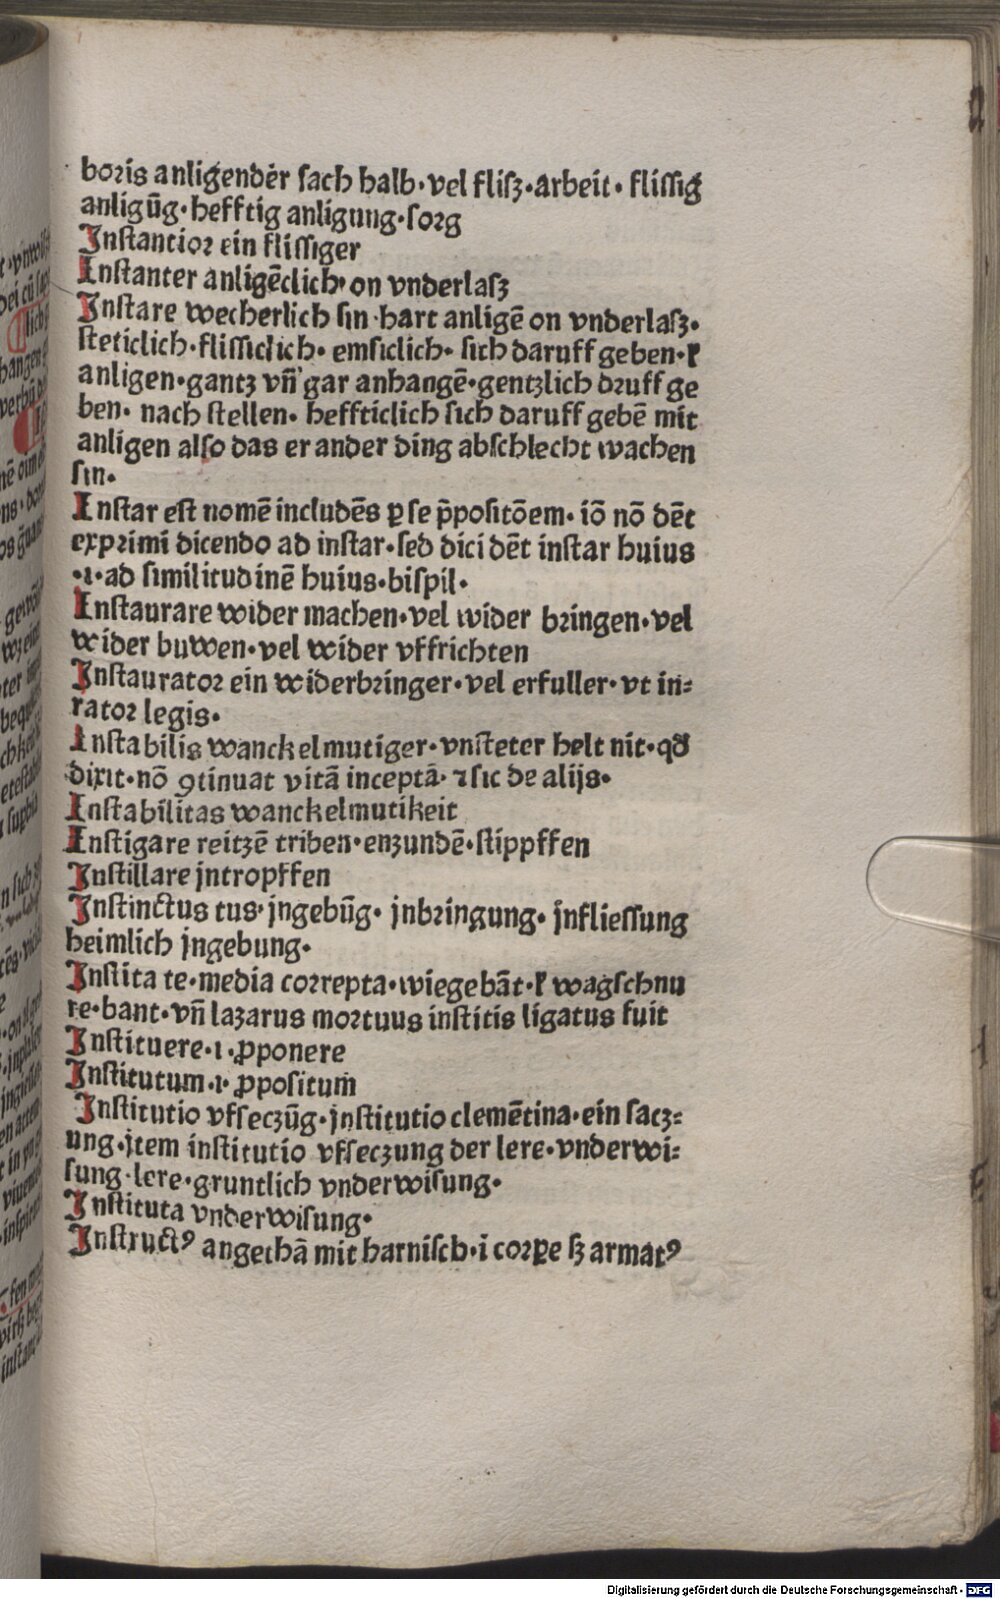 boris anligender ſach halb·vel fliſz·arbeit·fliſſig
anligūg·hefftig anligung·ſorg
Inſtantior ein fliſſiger
Inſtanter anligēclich·on vnderlaſz
Inſtare wecherlich ſin·hart anligē on vnderlaſz·
ſteticlich·fliſſiclich·emſiclich·ſich daruff geben·ꝉ
anligen·gantz vn̄ gar anhangē·gentzlich druff ge
ben·nach ſtellen·heffticlich ſich daruff gebē mit
anligen alſo das er ander ding abſchlecht wachen
ſin·
Inſtar eſt nomē includēs ꝑ ſe p̄poſitōem·iō nō dēt
exprimi dicendo ad inſtar·ſed dici dēt inſtar huius
·i·ad ſimilitudinē huius·biſpil·
Inſtaurare wider machen·vel wider bringen·vel
wider buwen·vel wider vffrichten
Inſtaurator ein widerbringer·vel erfuller·vt in⸗
rator legis·
Inſtabilis wanckelmutiger·vnſteter helt nit·qd̄
dixit·nō ꝯtinuat vitā inceptā·⁊ ſic de alijs·
Inſtabilitas wanckelmutikeit
Inſtigare reitzē triben·enzundē·ſtippffen
Inſtillare jntropffen
Inſtinctus tus·jngebūg·jnbringung·jnflieſſung
heimlich jngebung·
Inſtita te·media correpta·wiegebāt·ꝉ wagſchnu
re·bant·vn̄ lazarus mortuus inſtitis ligatus fuit
Inſtituere·i·ꝓponere
Inſtitutum·i·ꝓpoſitum
Inſtitutio vffſeczūg·jnſtitutio clemētina·ein ſacz⸗
ung·jtem inſtitutio vffſeczung der lere·vnderwi⸗
ſung·lere·gruntlich vnderwiſung·
Inſtituta vnderwiſung·
Inſtructꝰ angethā mit harniſch·ī corꝑe ſꝫ armatꝰ
Digitalisierung gefördert durch die Deutsche Forschungsgemeinschaft - DFG